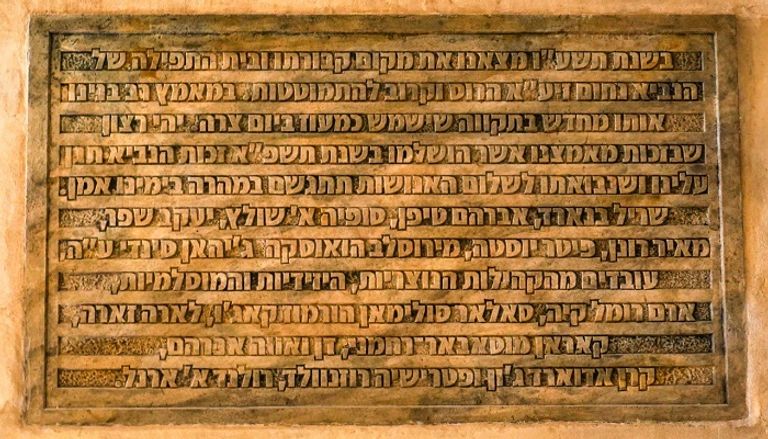 בשנת תשע"ו מצאנו את מקום קבורתו ובית התפילה של
הנביא נחום זיע"א הרוס וקרוב להתמוטטות. במאמץ רב בנינו
אותו מחדש בתקווה שישמש כמעוז ביום צרה. יהי רצון
שבזכות מאמצנו אשר הושלמו בשנת תשפ"א זכות הנביא תגן
עלינו ושנבואתו לשלום האנושות תתגשם במהרה בימינו אמן.
שריל בנארד, אברהם טיפן, סופיה א' שולץ, יעקב שפר,
מאיר רונן, פיטר יוסטה, מירוסלב הואוסקה, ג'יהאן סינדי ע"ה,
עובדים מהקהילות הנוצריות, היזידיות והמוסלמיות,
אדם רומל קיה, סאלאר סולימאן הורמוז קאג'ו, לארה זארה,
קאראן מוסא בארי רחמני, דן ואווה אברהם,
קרן אדוארד ג'ון ופטרישיה רוזנוולד, רולנד א' ארנל.